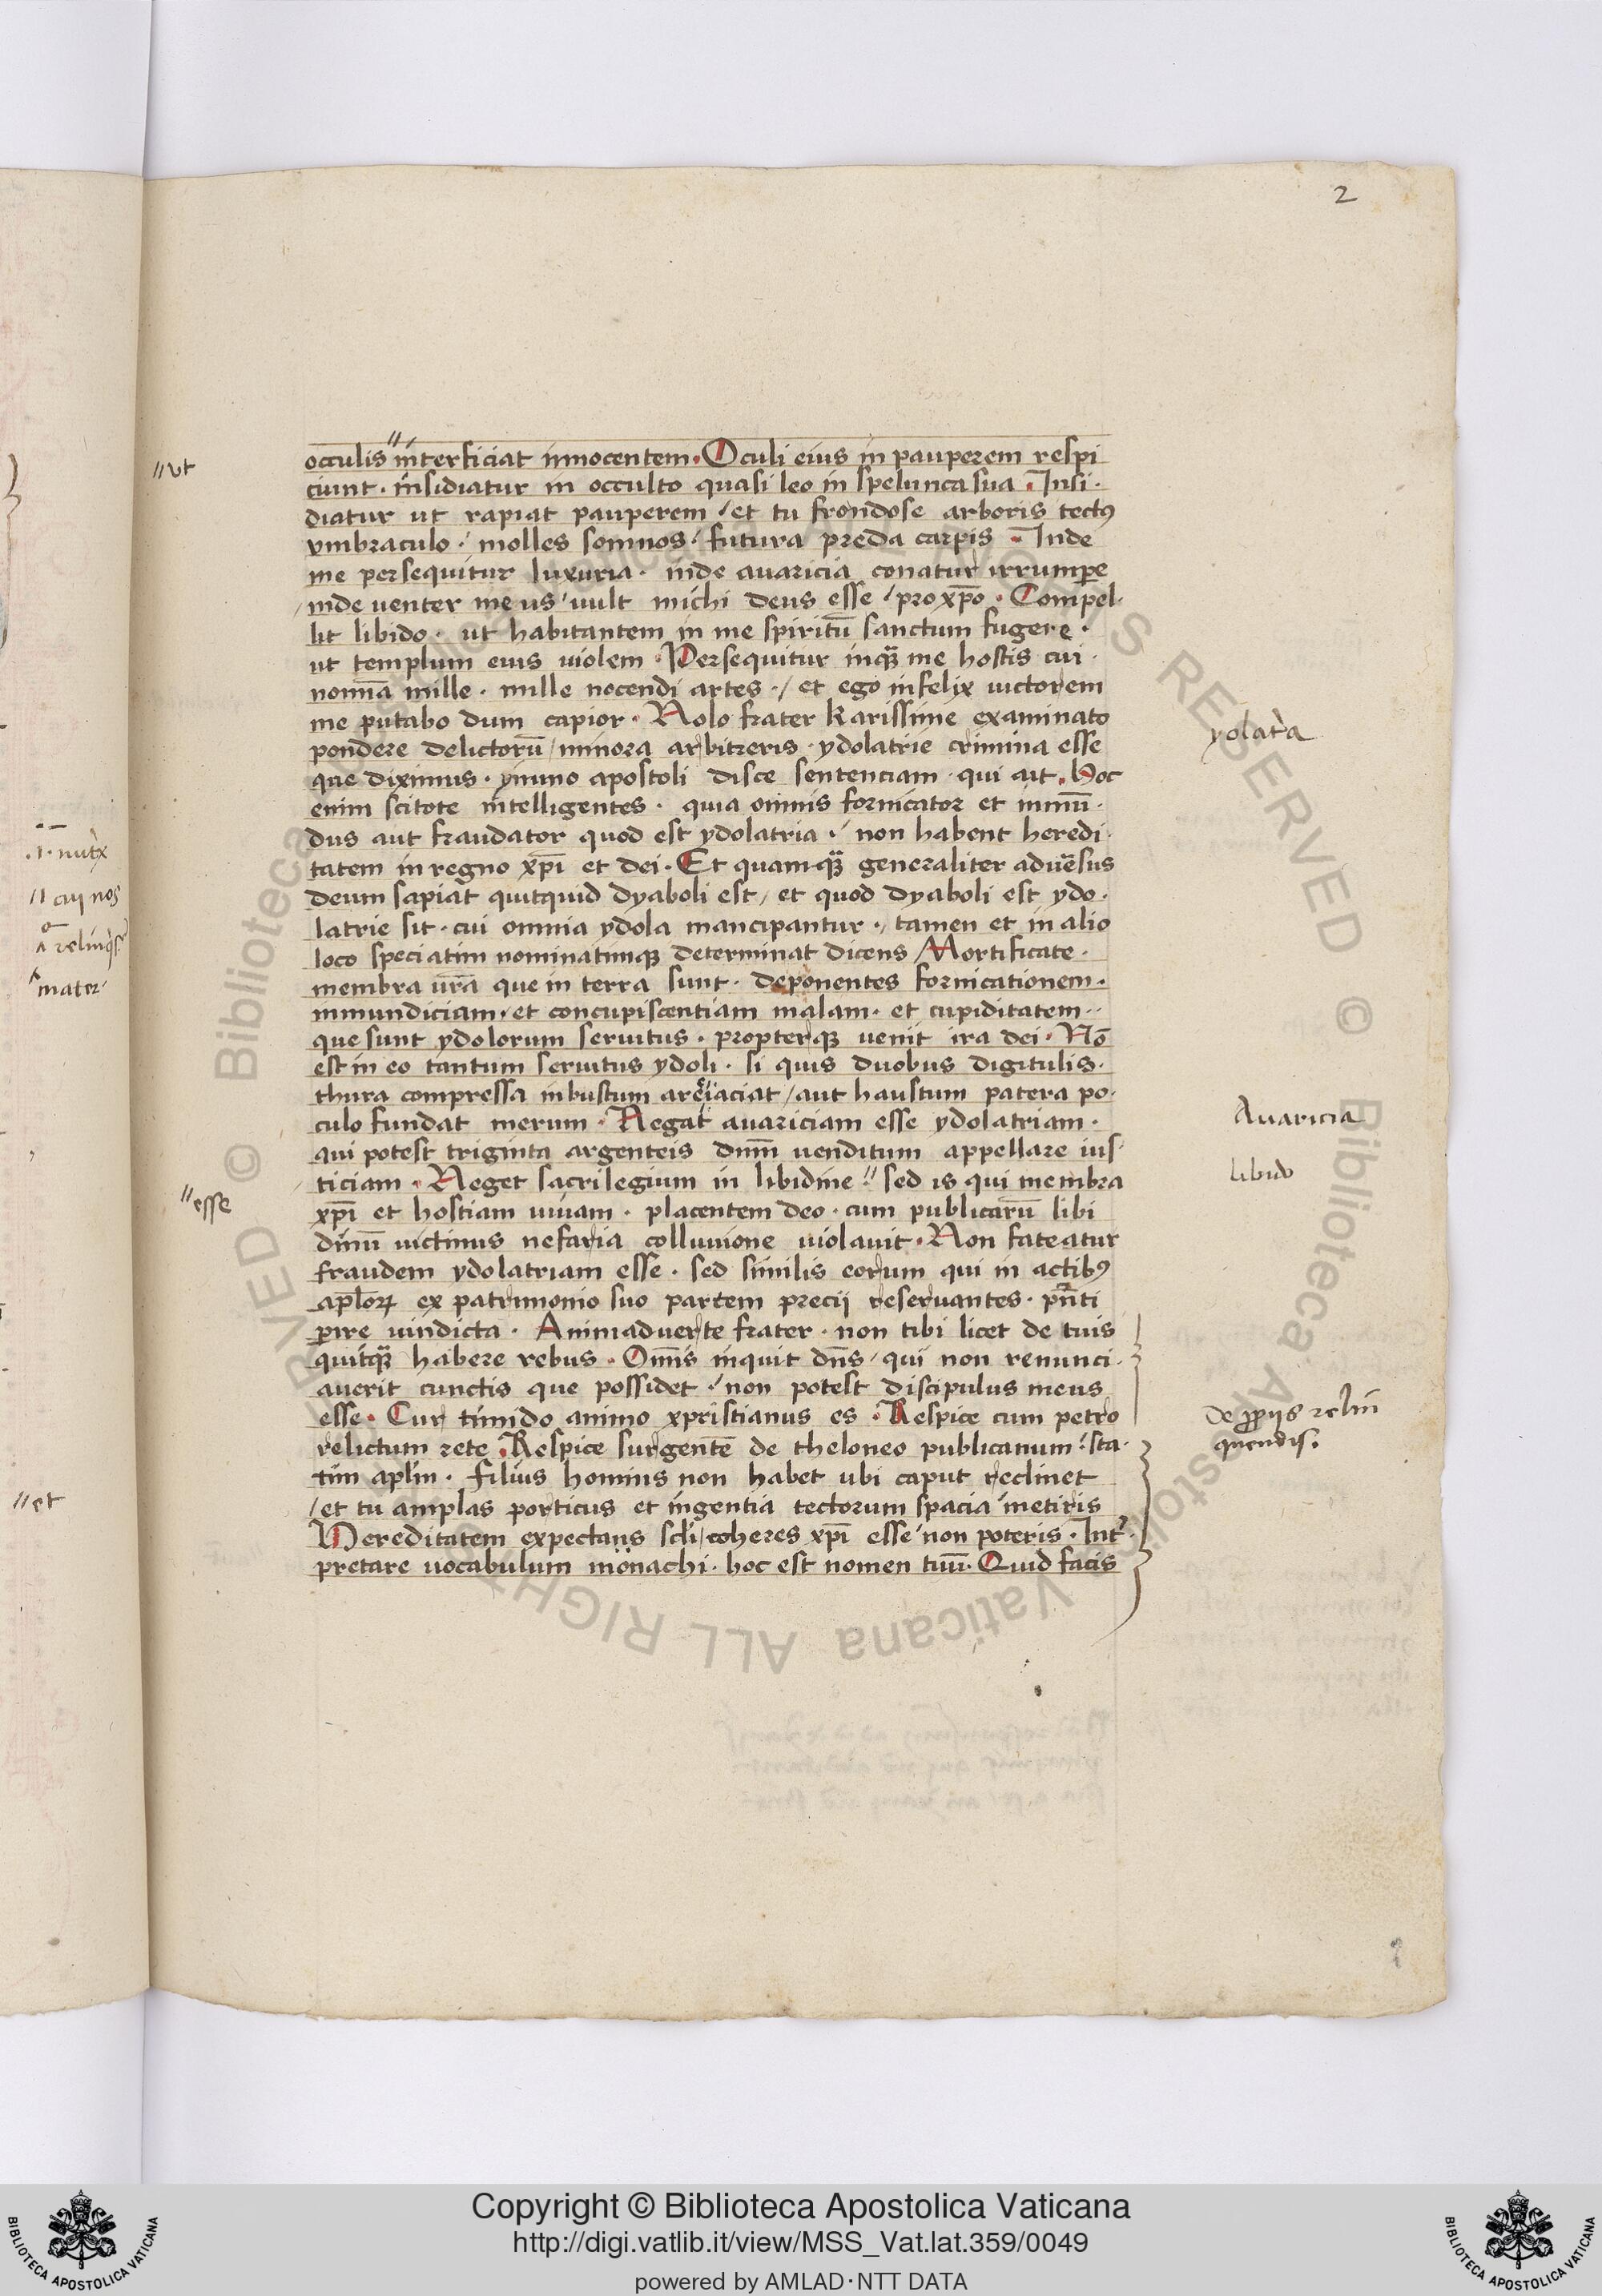 2
occulis interficiat innocentem. Oculi eius in pauperem respi
ciunt. insidiatur in occulto quasi leo in spelunca sua. Insi·
diatur ut rapiat pauperem / et tu frondose arboris tectꝰ
vmbraculo / molles somnos / futura preda carpis. Inde
me persequitur luxuria. inde auaricia conatur irrumpe
/ inde uenter meus / uult michi deus esse / pro xp̄o. Compel·
lit libido. ut habitantem in me spiritū sanctum fugere.
ut templum eius uiolem. Persequitur inqͣ me hostis cui·
nomīa mille. mille nocendi artes. / et ego infelix uictorem
me putabo dum capior. Nolo frater karissime examinato
pondere delictorū / minora arbitreris ydolatrie crimina esse
que diximus. ymmo apostoli disce sentenciam. qui ait. Hoc
enim scitote intelligentes. quia omnis fornicator et inmū·
dus aut fraudator quod est ydolatria / non habent heredi
tatem in regno xp̄i et dei. Et quamqͣ generaliter aduersus
deum sapiat quitquid dyaboli est / et quod dyaboli est ydo·
latrie sit. cui omnia ydola mancipantur. / tamen et in alio
loco speciatim nominatimqꝫ determinat dicens Mortificate.
membra ur̄a que in terra sunt. deponentes fornicationem.
inmundiciam. et concupiscentiam malam. et cupiditatem.
que sunt ydolorum seruitus. propterqꝫ uenit ira dei. Nō
est in eo tantum seruitus ydoli. si quis duobus digitulis.
thura compressa in bustum are iaciat / aut haustum patera po·
culo fundat merum. Negat auariciam esse ydolatriam.
qui potest triginta argenteis dnm̄ uenditum appellare ius·
ticiam. Neget sacrilegium in libidine // sed is qui membra
xp̄i et hostiam uiuam. placentem deo. cum publicarū libi
dinū uictimis nefaria colluuione uiolauit. Non fateatur
fraudem ydolatriam esse. sed similis eorum qui in actibꝰ
apl̄oꝝ ex patrimonio suo partem precii reseruantes. pn̄ti
ꝑire uindicta. Animaduerte frater. non tibi licet de tuis
quitqͣ habere rebus. Omīs inquit dn̄s / qui non renunci·
auerit cunctis que possidet / non potest discipulus meus
esse. Cur timido animo xpristianus es. Respice cum petro
relictum rete. Respice surgentē de theloneo publicanum / sta·
tim apl̄m. filius hominis non habet ubi caput reclinet
/ et tu amplas porticus et ingentia tectorum spacia metiris
Hereditatem expectans scl̄i / coheres xp̄i esse non poteris. Int̉·
pretare uocabulum monachi. hoc est nomen tuū. Quid facis
// ut
// esse
// et
Auaricia
libido
De ꝓpijs relin
quendis.
// cuj nos
mater
Copyright © Biblioteca Apostolica Vaticana
http://digi.vatlib.it/view/MSS_Vat.lat.359/0049
powered by AMLAD·NTT DATA
BIBLIOTECA APOSTOLICA VATICANA
BIBLIOTECA APOSTOLICA VATICANA